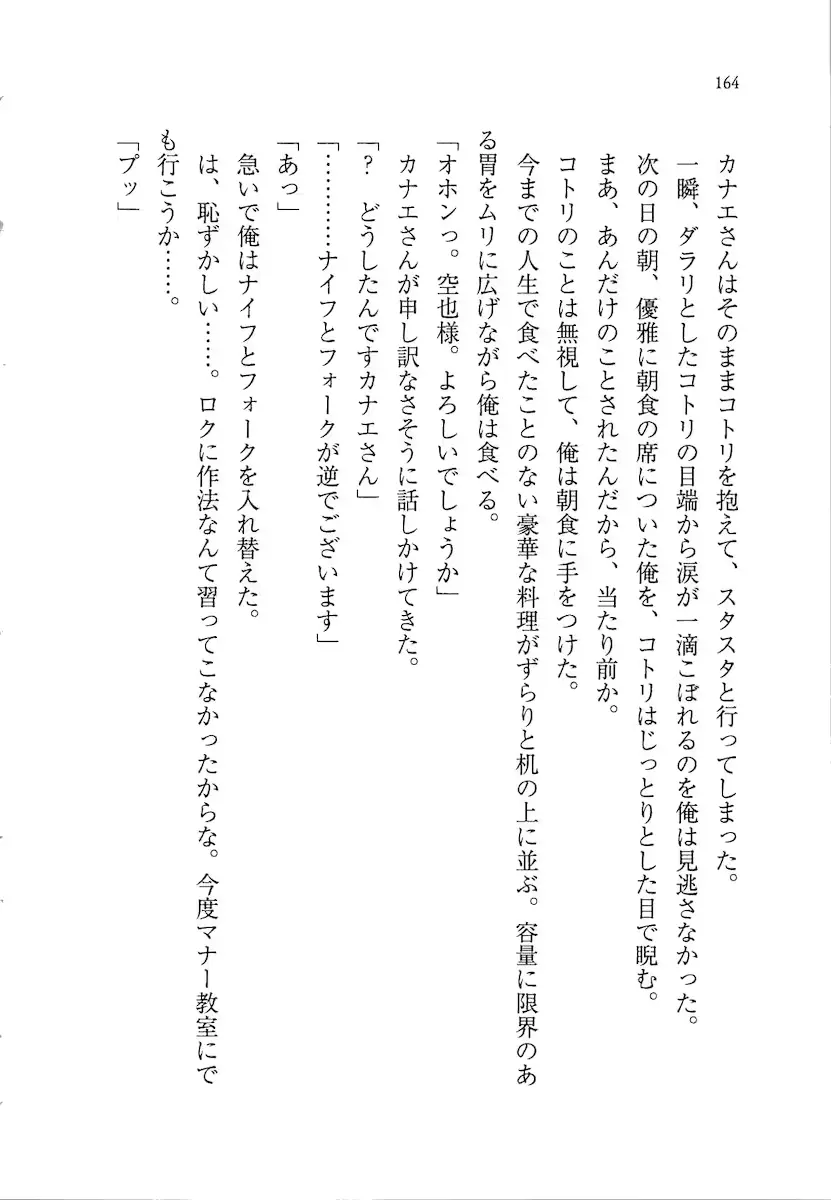 164
カナエさんはそのままコトリを抱えて、スタスタと行ってしまった。
一瞬、ダラリとしたコトリの目端から涙が一滴こぼれるのを俺は見逃さなかった。
次の日の朝、優雅に朝食の席についた俺を、コトリはじっとりとした目で睨む。
まあ、あんだけのことされたんだから、当たり前か。
コトリのことは無視して、俺は朝食に手をつけた。
今までの人生で食べたことのない豪華な料理がずらりと机の上に並ぶ。容量に限界のあ
る胃をムリに広げながら俺は食べる。
「オホンっ。空也様。よろしいでしょうか」
カナエさんが申し訳なさそうに話しかけてきた。
「?　どうしたんですカナエさん」
「…………ナイフとフォークが逆でございます」
「あっ」
急いで俺はナイフとフォークを入れ替えた。
は、恥ずかしい……。ロクに作法なんて習ってこなかったからな。今度マナー教室にで
も行こうか……。
「プッ」